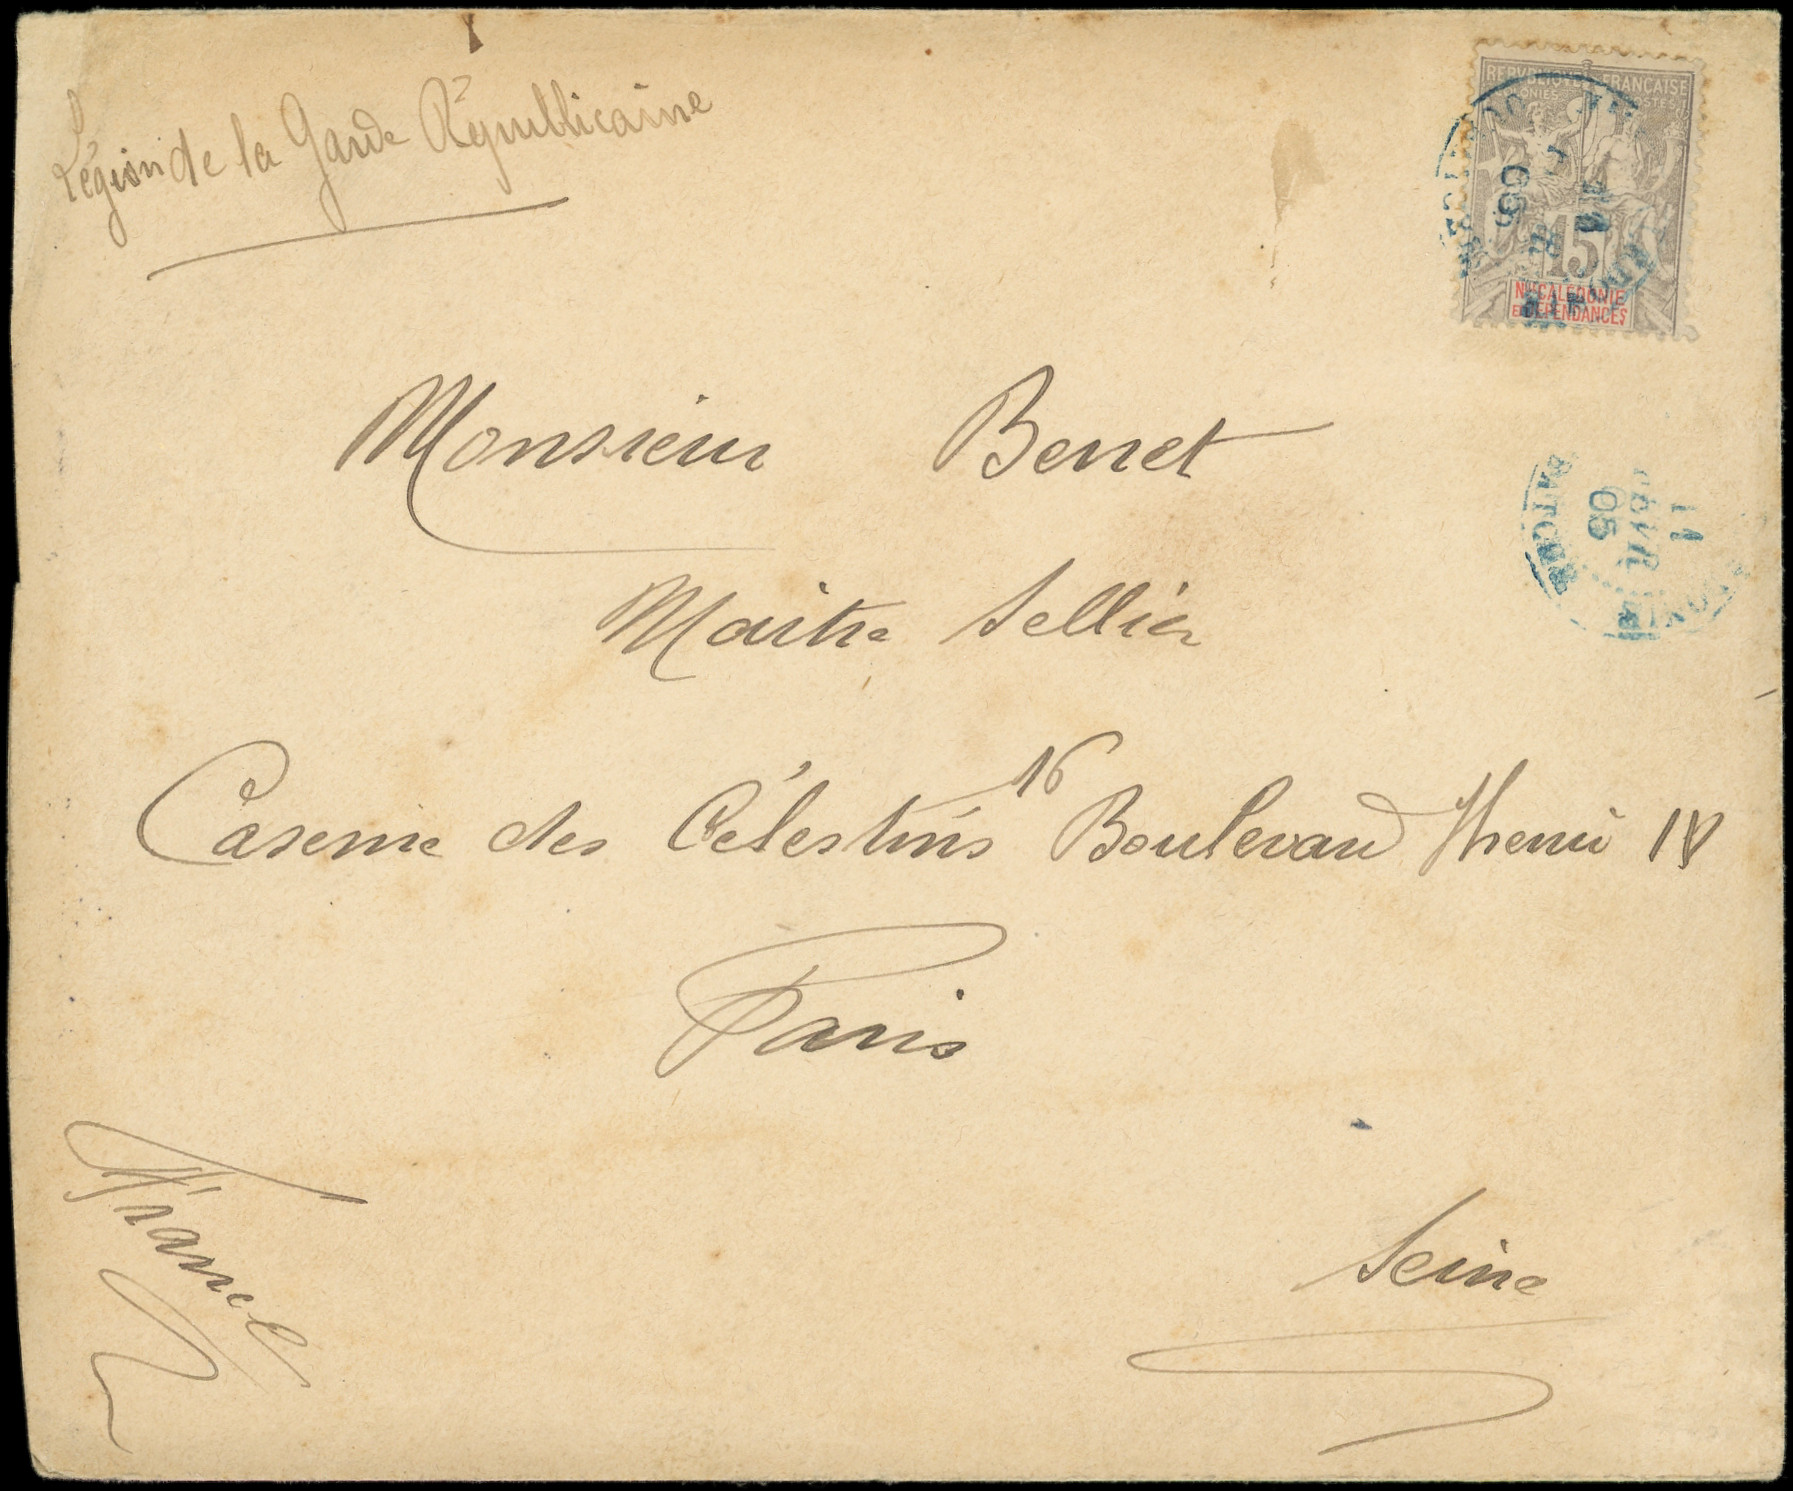 Légion de la Garde Républicaine
REPVBLIQVE FRANÇAISE
COLONIES POSTES
15
Nlle CALÉDONIE
ET DÉPENDANCES
Monsieur Benet
11
FEVR
05
Maitre Sellier
16
Caserne des Célestins Boulevard Henri IV
Paris
France
Seine